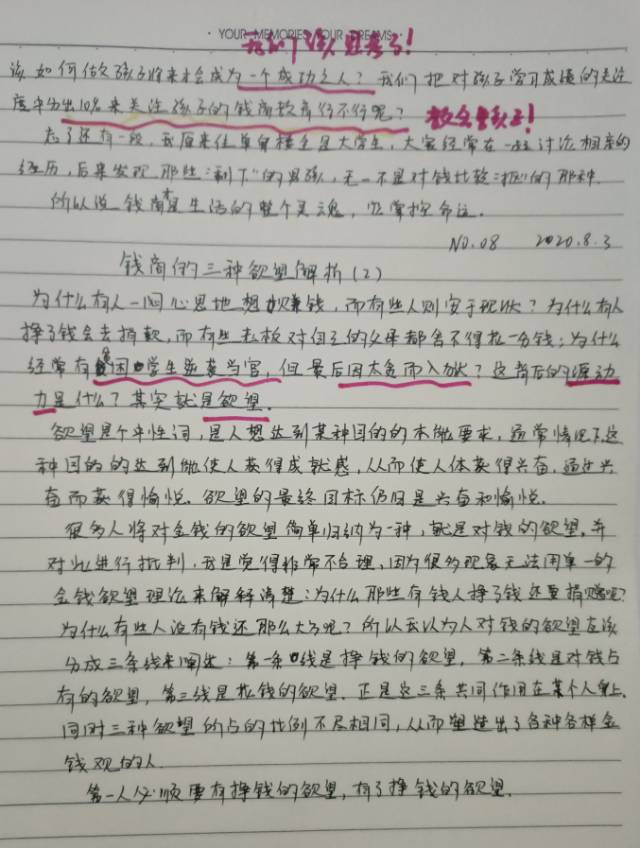 YOUR MEMORIES YOUR DREAMS
该如何做孩子将来才会成为一个成功之人？我们把对孩子学习成绩的关注
度中分出10%来关注孩子的钱商教育行不行呢？
忘了还有一段，我原来住单身楼全是大学生，大家经常在一起讨论相亲的
经历，后来发现那些“剩下”的男孩，无一不是对钱比较“抠”的那种．
所以说钱商是生活的整个灵魂，它掌控命运．
NO.08 2020.8.3
钱商的三种欲望解析（2）
为什么有人一门心思地想赚钱，而有些人则安于现状？为什么有人
挣了钱会去捐款，而有些老板对自己的父母都舍不得花一分钱；为什么
经常有贫困学生逆袭当官，但最后因太贪而入狱？这背后的源动
力是什么？其实就是欲望．
欲望是个中性词，是人想达到某种目的的本能要求，通常情况下这
种目的的达到能使人获得成就感，从而使人体获得兴奋，通过兴
奋而获得愉悦．欲望的最终目标仍旧是兴奋和愉悦．
很多人将对金钱的欲望简单归纳为一种，就是对钱的欲望，并
对此进行批判，我是觉得非常不合理，因为很多现象无法用单一的
金钱欲望理论来解释清楚：为什么那些有钱人挣了钱还要捐赠呢？
为什么有些人没有钱还那么大方呢？所以我认为人对钱的欲望应该
分成三条线来阐述：第一条线是挣钱的欲望，第二条线是对钱占
有的欲望，第三线是花钱的欲望．正是这三条共同作用在某个人身上，
同时三种欲望所占的比例不尽相同，从而塑造出了各种各样金
钱观的人．
第一人必须要有挣钱的欲望，有了挣钱的欲望．